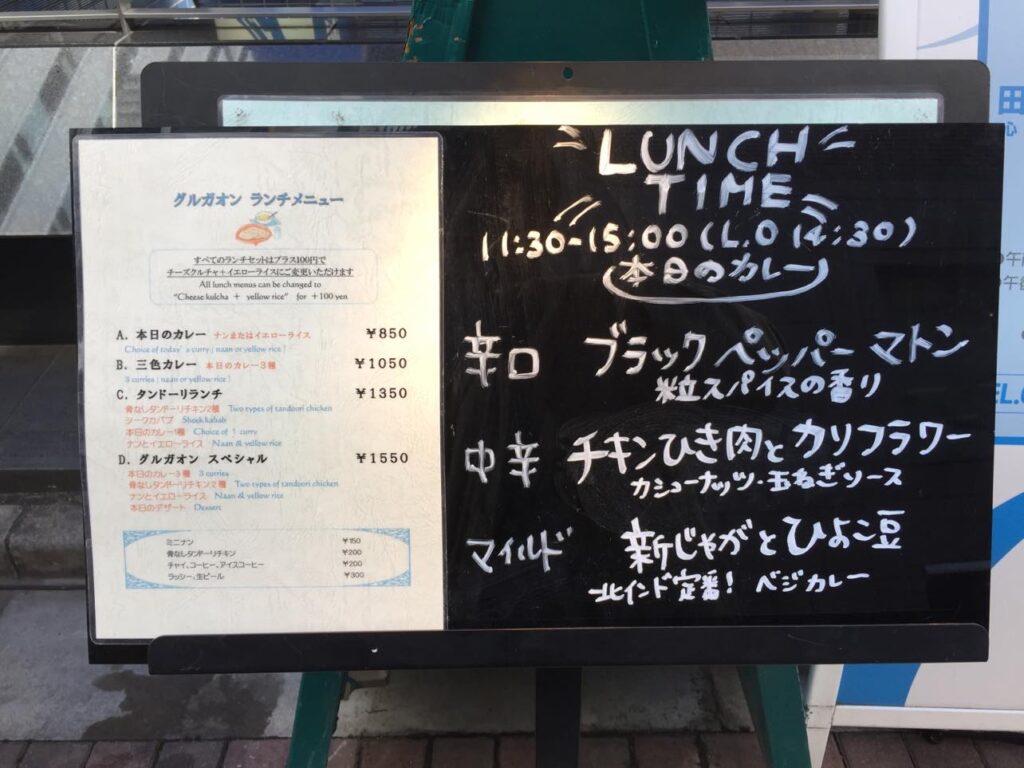 グルガオン ランチメニュー
すべてのランチセットはプラス100円で
チーズクルチャ+イエローライスにご変更いただけます
All lunch menus can be changed to
"Cheese kulcha + yellow rice" for +100 yen
A. 本日のカレー ナンまたはイエローライス ¥850
Choice of today's curry ( naan or yellow rice )
B. 三色カレー 本日のカレー3種 ¥1050
3 curries ( naan or yellow rice )
C. タンドーリランチ ¥1350
骨なしタンドーリチキン2種 Two types of tandoori chicken
シークカバブ Sheek kabab
本日のカレー1種 Choice of 1 curry
ナンとイエローライス Naan & yellow rice
D. グルガオン スペシャル ¥1550
本日のカレー3種 3 curries
骨なしタンドーリチキン2種 Two types of tandoori chicken
ナンとイエローライス Naan & yellow rice
本日のデザート Dessert
ミニナン ¥150
骨なしタンドーリチキン ¥200
チャイ、コーヒー、アイスコーヒー ¥200
ラッシー、生ビール ¥300
LUNCH
TIME
11:30-15:00 (L.O 14:30)
本日のカレー
辛口 ブラックペッパーマトン
粒スパイスの香り
中辛 チキンひき肉とカリフラワー
カシューナッツ・玉ねぎソース
マイルド 新じゃがとひよこ豆
北インド定番! ベジカレー